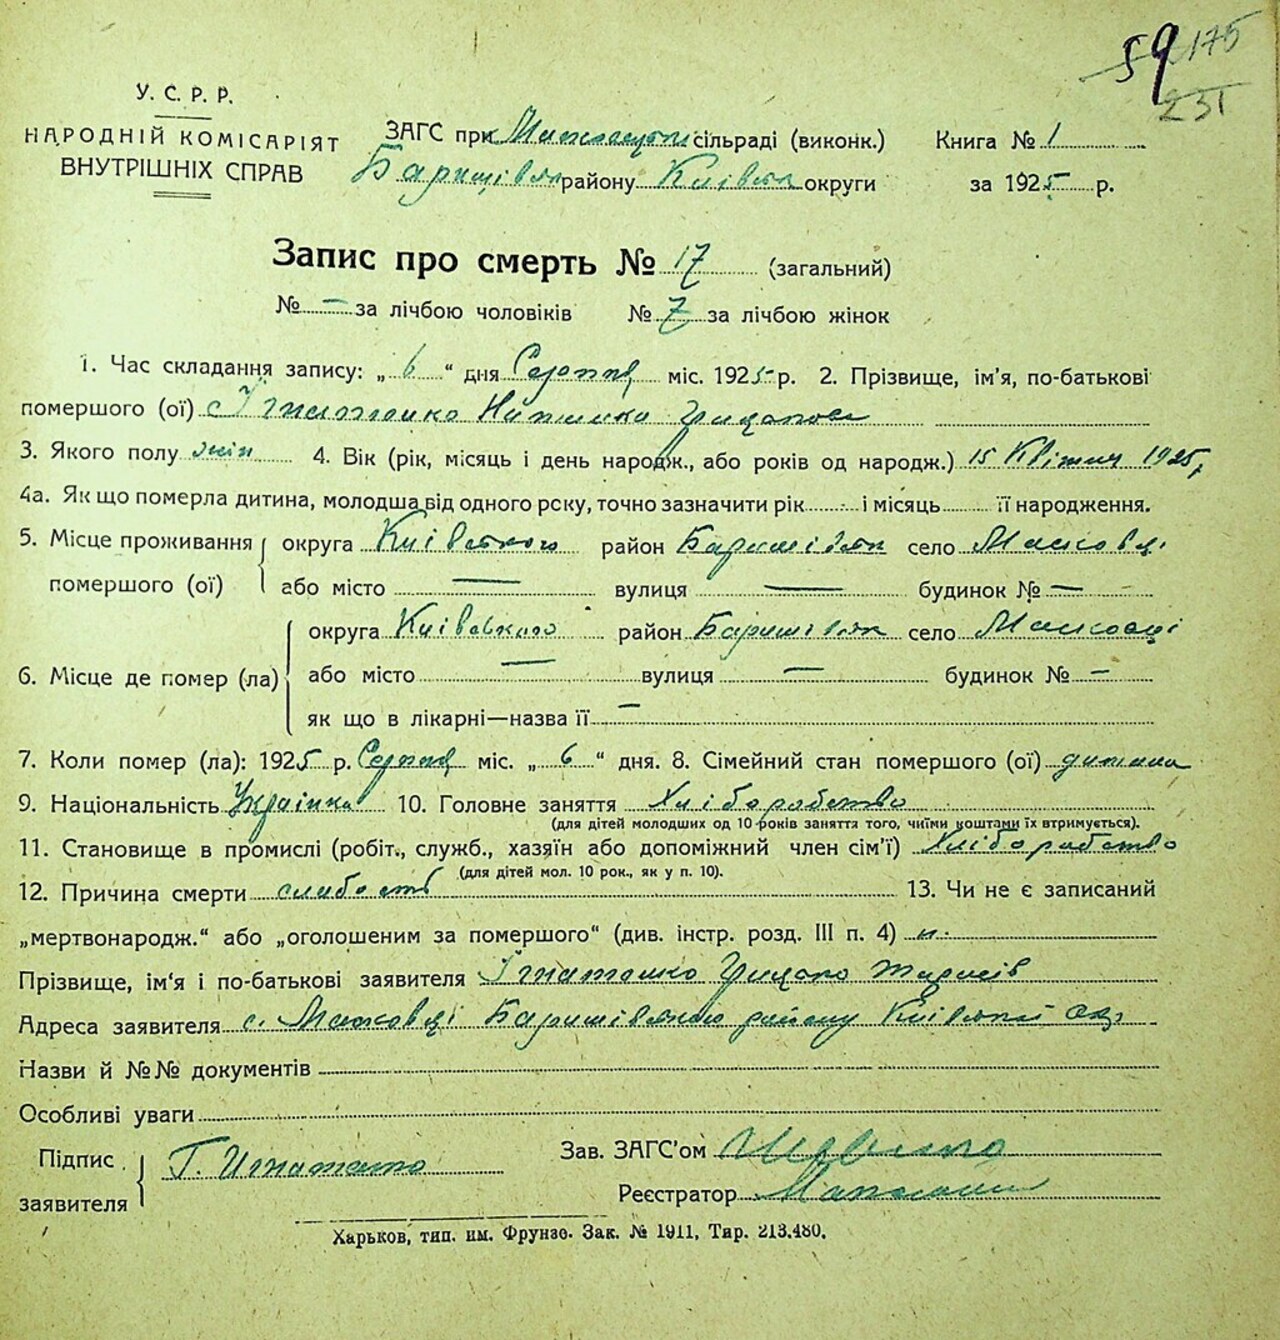 59 175
231
У. С. Р. Р.
НАРОДНІЙ КОМІСАРІЯТ
ВНУТРІШНІХ СПРАВ
ЗАГС при сільраді (виконк.)
Баришівськ району Київськ округи
Книга № 1
за 1925 р.
Запис про смерть № 17 (загальний)
№ — за лічбою чоловіків № 7 за лічбою жінок
1. Час складання запису: „ 6 “ дня Серпня міс. 1925 р. 2. Прізвище, ім'я, по-батькові
помершого (ої) Ігнатенко
3. Якого полу жін 4. Вік (рік, місяць і день народж., або років од народж.) 15 Квітня 1925 р
4а. Як що померла дитина, молодша від одного рску, точно зазначити рік і місяць її народження.
5. Місце проживання помершого (ої) округа Київського район Баришівськ село Масковці
або місто — вулиця — будинок № —
6. Місце де помер (ла) округа Київського район Баришівськ село Масковці
або місто — вулиця — будинок № —
як що в лікарні—назва її —
7. Коли помер (ла): 1925 р. Серпня міс. „ 6 “ дня. 8. Сімейний стан помершого (ої) дитина
9. Національність Українка 10. Головне заняття Хліборобство
(для дітей молодших од 10 років заняття того, чиїми коштами їх втримується).
11. Становище в промислі (робіт., служб., хазяїн або допоміжний член сім'ї) Хліборобство
(для дітей мол. 10 рок., як у п. 10).
12. Причина смерти слабость 13. Чи не є записаний
„мертвонародж.“ або „оголошеним за помершого“ (див. інстр. розд. III п. 4) н.
Прізвище, ім'я і по-батькові заявителя Ігнатенко Грицько Тарасів
Адреса заявителя с. Масковці Баришівського району Київської окр
Назви й №№ документів
Особливі уваги
Підпис заявителя Г. Игнатенко
Зав. ЗАГС'ом
Реєстратор
Харьков, тип. им. Фрунзе. Зак. № 1911, Тир. 213.480.